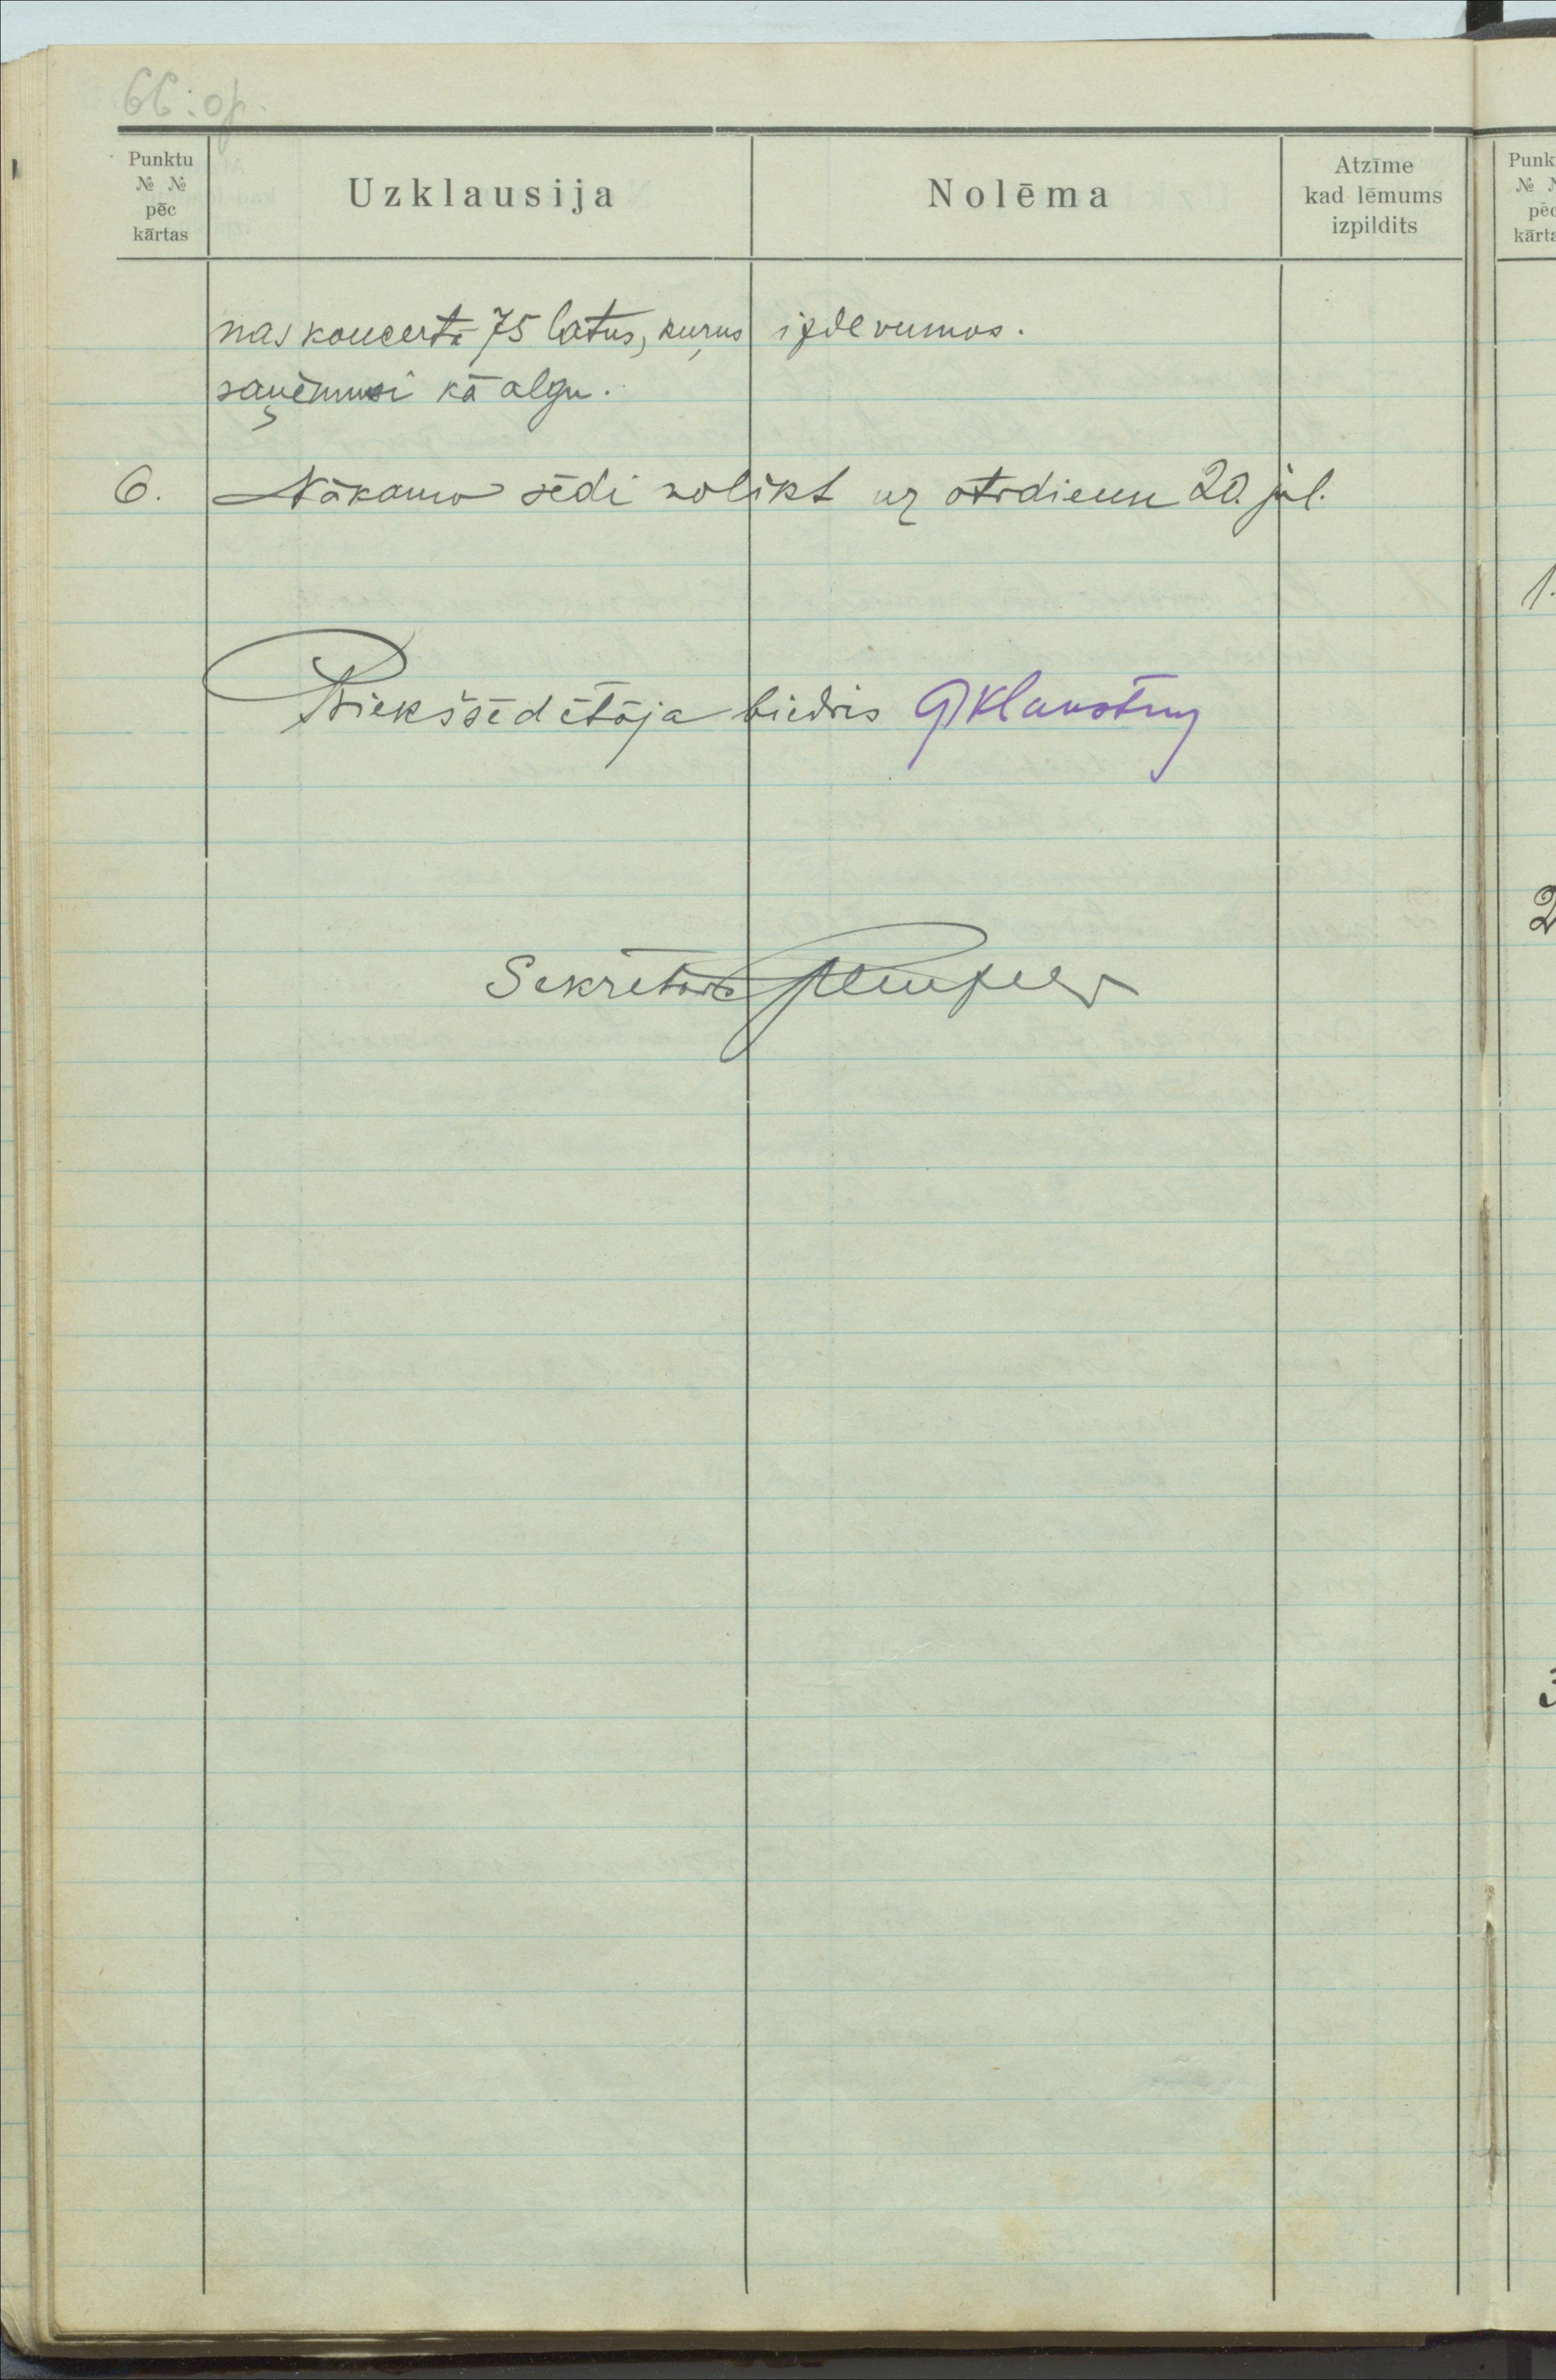 66. op.
Punktu № № pēc kārtas
Uzklausija
Nolēma
Atzīme kad lēmums izpildits
nas koncertā 75 latus, kuŗus
saņēmusi kā algu.
izdevumos.
6. Nākamo sēdi nolikt uz otrdienu 20. jūl.
Priekšsēdētāja biedris GKlaustiņ
Sekretārs
Punk
№ №
pēc
kārta
1.
2
3